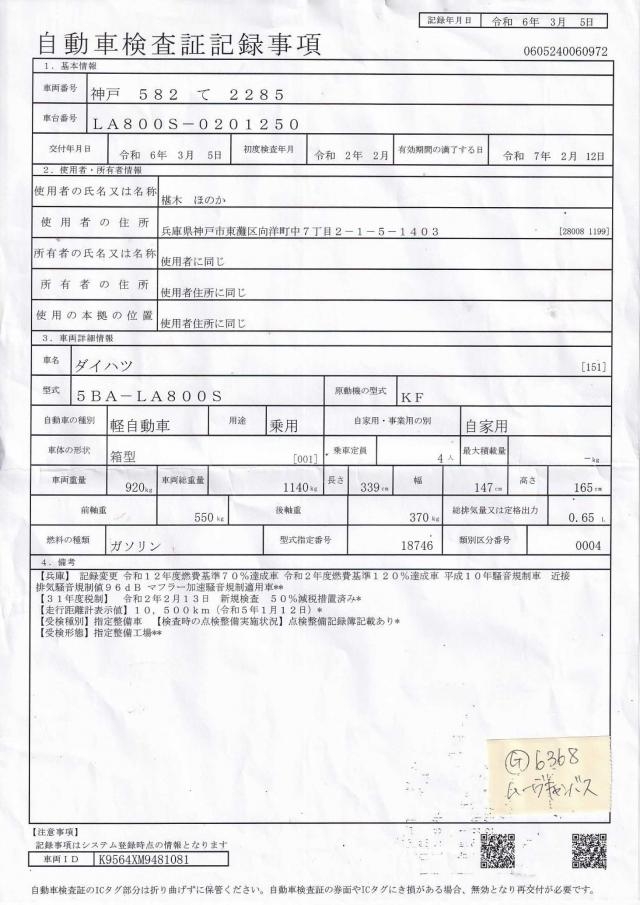 記録年月日 令和 6年 3月 5日
自動車検査証記録事項
0605240060972
1．基本情報
車両番号 神戸 582 て 2285
車台番号 LA800S－0201250
交付年月日 令和 6年 3月 5日 初度検査年月 令和 2年 2月 有効期間の満了する日 令和 7年 2月 12日
2．使用者・所有者情報
使用者の氏名又は名称 椹木 ほのか
使用者の住所 兵庫県神戸市東灘区向洋町中7丁目2－1－5－1403 [28008 1199]
所有者の氏名又は名称 使用者に同じ
所有者の住所 使用者住所に同じ
使用の本拠の位置 使用者住所に同じ
3．車両詳細情報
車名 ダイハツ [151]
型式 5BA－LA800S 原動機の型式 KF
自動車の種別 軽自動車 用途 乗用 自家用・事業用の別 自家用
車体の形状 箱型 [001] 乗車定員 4人 最大積載量 －kg
車両重量 920kg 車両総重量 1140kg 長さ 339cm 幅 147cm 高さ 165cm
前軸重 550kg 後軸重 370kg 総排気量又は定格出力 0.65 L
燃料の種類 ガソリン 型式指定番号 18746 類別区分番号 0004
4．備考
【兵庫】 記録変更 令和12年度燃費基準70％達成車 令和2年度燃費基準120％達成車 平成10年騒音規制車 近接
排気騒音規制値96dB マフラー加速騒音規制適用車**
【31年度税制】 令和2年2月13日 新規検査 50％減税措置済み*
【走行距離計表示値】10，500km（令和5年1月12日）*
【受検種別】指定整備車 【検査時の点検整備実施状況】点検整備記録簿記載あり*
【受検形態】指定整備工場**
G 6368
ムーヴキャンバス
【注意事項】
記録事項はシステム登録時点の情報となります
車両ID K9564XM9481081
自動車検査証のICタグ部分は折り曲げずに保管ください。自動車検査証の券面やICタグにき損がある場合、無効となり再交付が必要です。